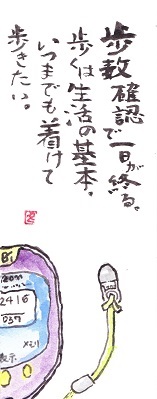 歩数確認で一日が終る。
歩くは生活の基本。
いつまでも着けて
歩きたい。
2416
D37
メモリ
表示